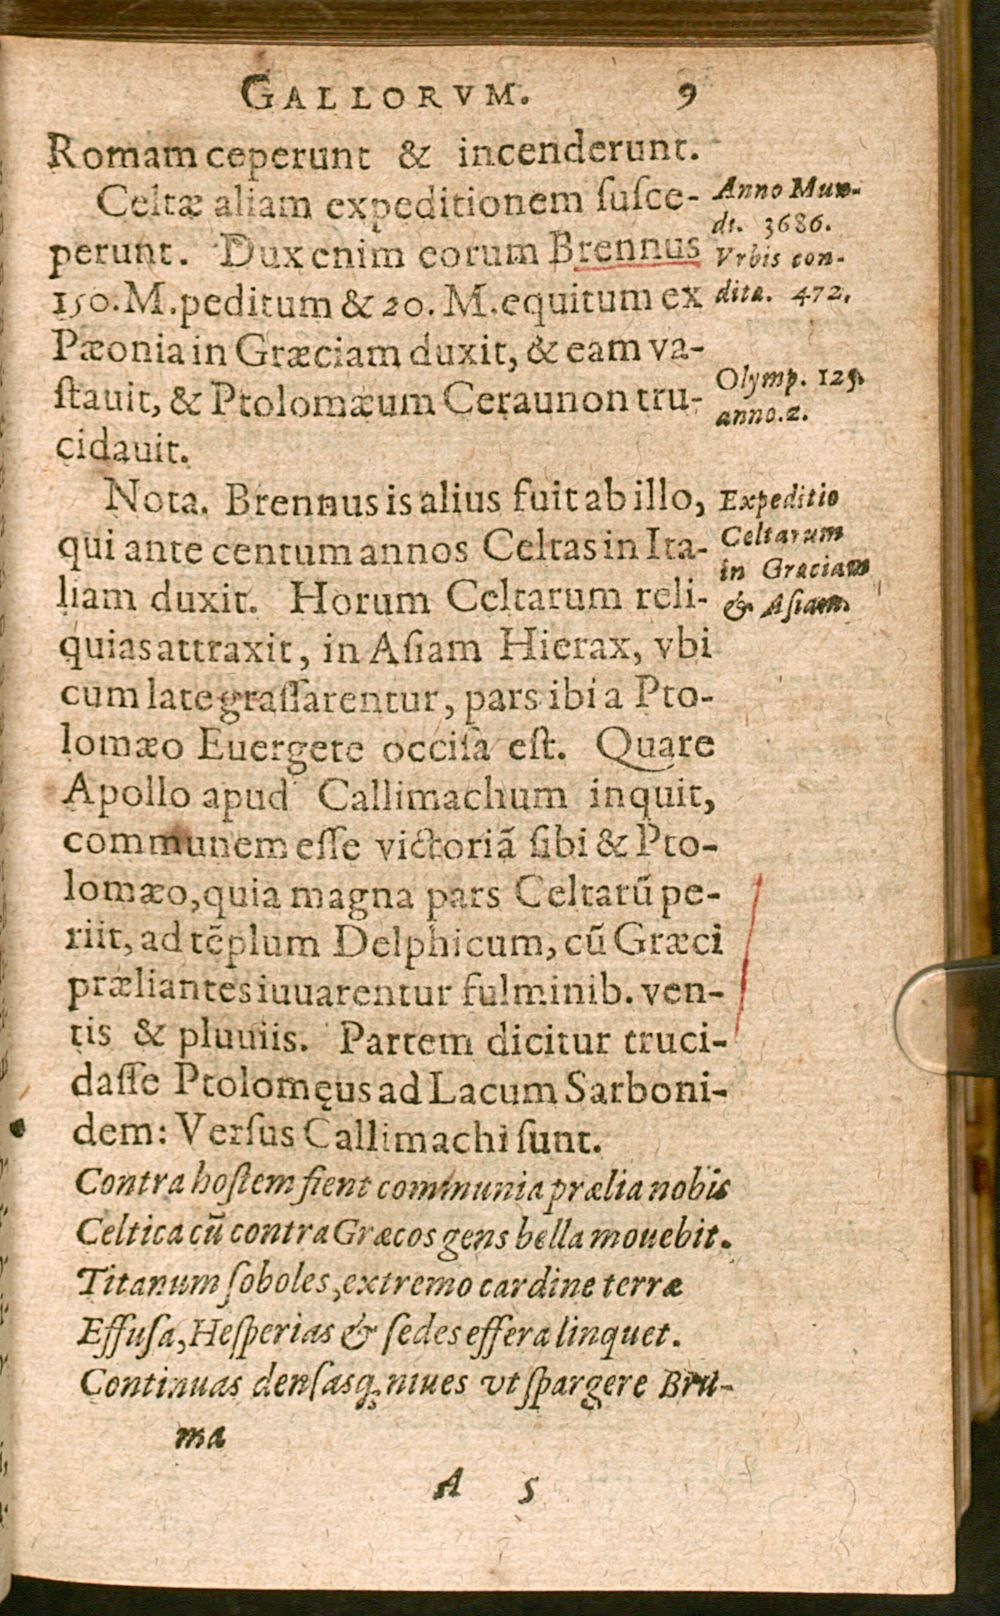 GALLORVM. 9
Romam ceperunt & incenderunt.
Celtæ aliam expeditionem ſuſce-
perunt. Dux enim eorum Brennus
150. M. peditum & 20. M. equitum ex
Pæonia in Græciam duxit, & eam va-
ſtauit, & Ptolomæum Ceraunon tru-
cidauit.
Nota. Brennus is alius fuit ab illo,
qui ante centum annos Celtas in Ita-
liam duxit. Horum Celtarum reli-
quias attraxit, in Aſiam Hierax, vbi
cum late graſſarentur, pars ibi a Pto-
lomæo Euergete occiſa eſt. Quare
Apollo apud Callimachum inquit,
communem eſſe victoriã ſibi & Pto-
lomæo, quia magna pars Celtarũ pe-
riit, ad tẽplum Delphicum, cũ Græci
præliantes iuuarentur fulminib. ven-
tis & pluuiis. Partem dicitur truci-
daſſe Ptolomęus ad Lacum Sarboni-
dem: Verſus Callimachi ſunt.
Contra hoſtem fient communia prælia nobis
Celtica cũ contra Græcos gens bella mouebit.
Titanum ſoboles, extremo cardine terræ
Effuſa, Heſperias & ſedes effera linquet.
Continuas denſasq; niues vt ſpargere Bru-
ma
A 5
Anno Mun-
di. 3686.
Vrbis con-
ditæ. 472.
Olymp. 125.
anno. 2.
Expeditio
Celtarum
in Græciam
& Aſiam.